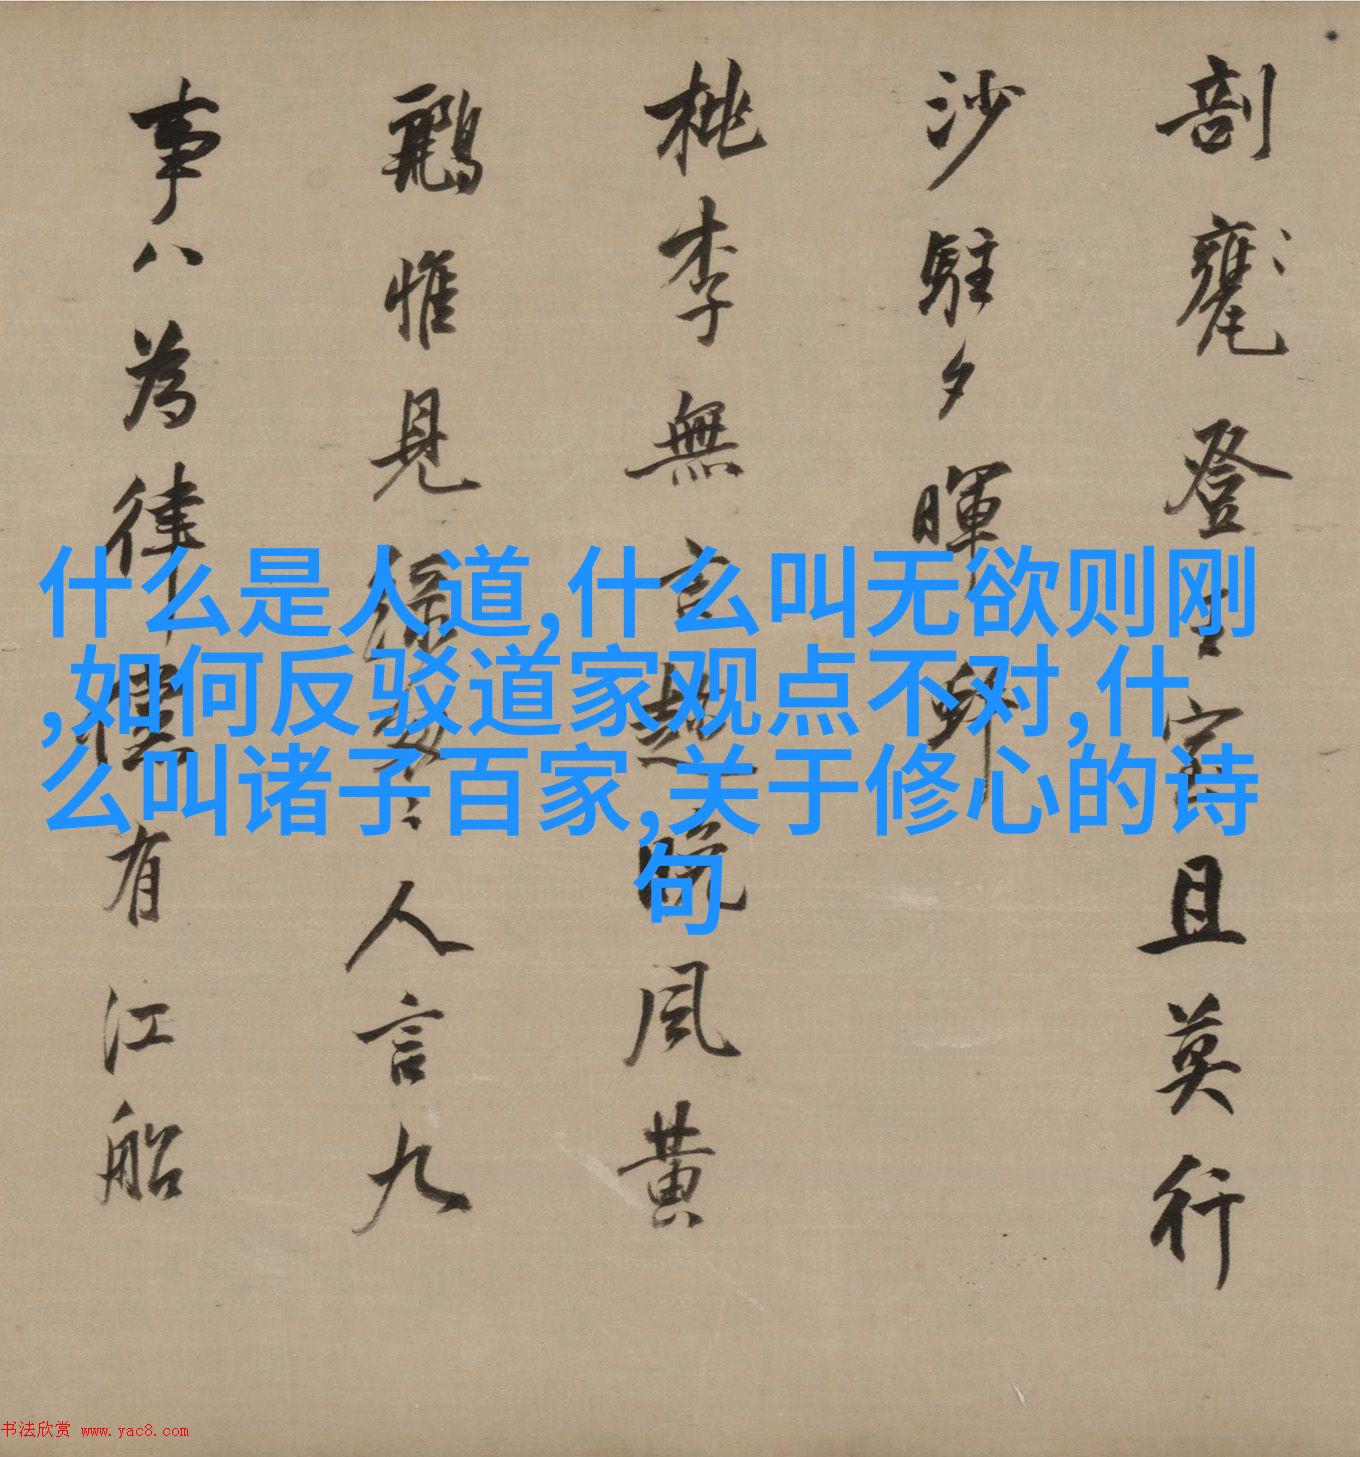 什么是人道,什么叫无欲则刚
,如何反驳道家观点不对,什
么叫诸子百家,关于修心的诗
句
剖甕登主家且莫行
沙駐夕暉
桃李無言晚風黃
鸝惟見綠人言九
事八為律有江船
书法欣赏 www.yac8.com